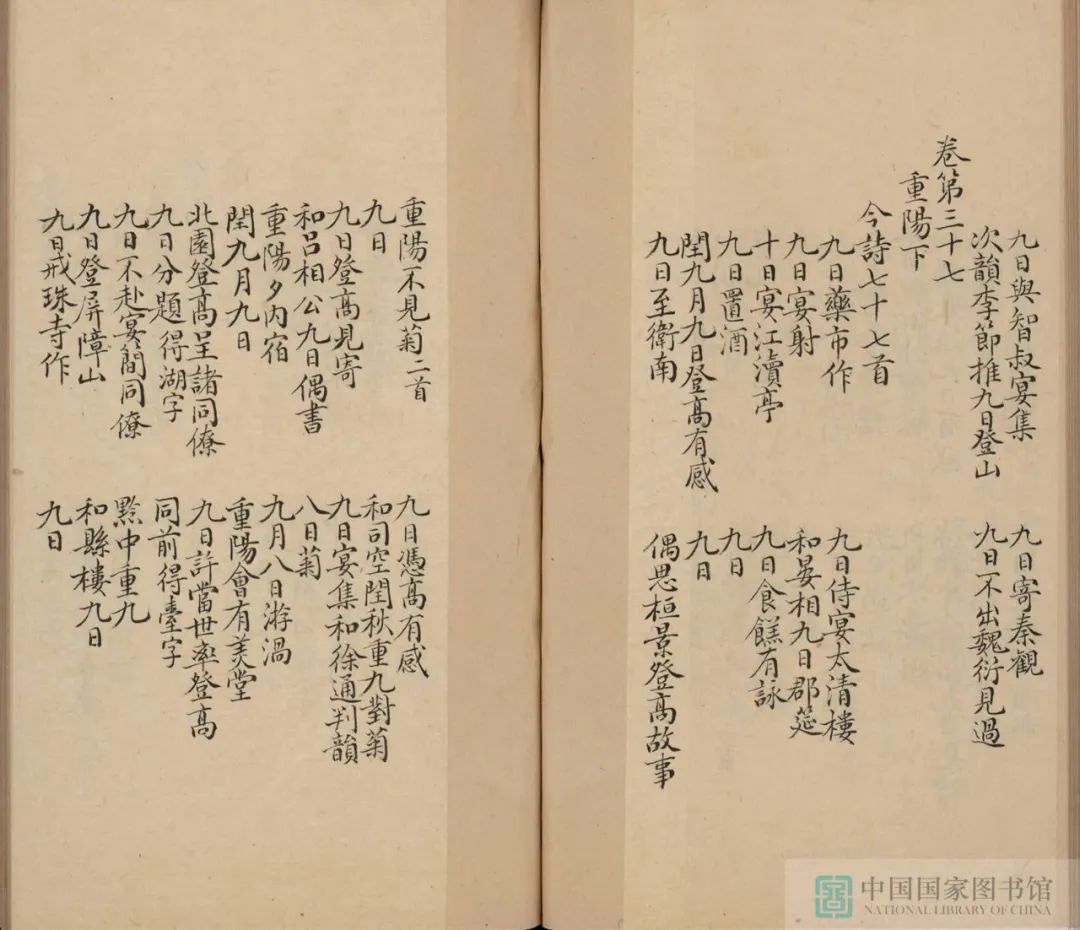 九日與智叔宴集
九日寄秦觀
次韻李節推九日登山
九日不出魏衍見過
卷第三十七
重陽下
今詩七十七首
九日藥市作
九日侍宴太清樓
九日宴射
和晏相九日郡筵
十日宴江瀆亭
九日食餻有詠
九日置酒
九日
閏九月九日登高有感
九日
九日至衛南
偶思桓景登高故事
重陽不見菊二首
九日憑高有感
九日
和司空閏秋重九對菊
九日登高見寄
九日宴集和徐通判韻
和呂相公九日偶書
八日菊
重陽夕內宿
九月八日游渦
閏九月九日
重陽會有美堂
北園登高呈諸同僚
九日許當世率登高
九日分題得湖字
同前得臺字
九日不赴宴簡同僚
黔中重九
九日登屏障山
和縣樓九日
九日戒珠寺作
九日
中国国家图书馆
NATIONAL LIBRARY OF CHINA